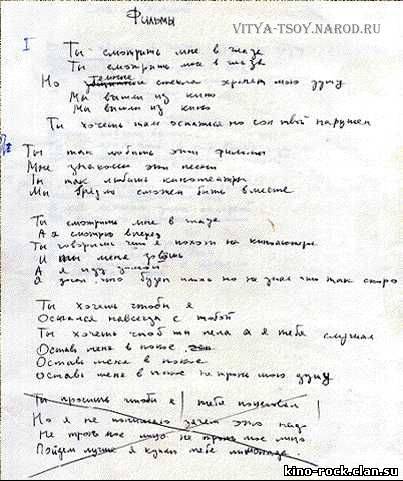 Фильмы
VITYA-TSOY.NAROD.RU
I
Ты смотришь мне в глаза
Ты смотришь мне в глаза
Но темные стекла хранят мою душу
Мы вышли из кино
Мы вышли из кино
Ты хочешь там остаться но сон твой нарушен
Ты так любишь эти фильмы
Мне знакомы эти песни
Ты так любишь кинотеатры
Мы вряд ли сможем быть вместе
Ты смотришь мне в глаза
А я смотрю вперед
Ты говоришь что я похож на киноактера
И ты меня зовешь
А я иду домой
Я знал что будет плохо но не знал что так скоро
Ты хочешь чтобы я
Остался навсегда с тобой
Ты хочешь чтоб ты пела а я тебя слушал
Оставь меня в покое
Оставь меня в покое
Оставь меня в покое не тронь мою душу
Ты просишь чтобы я тебя поцеловал
Но я не понимаю зачем это надо
Не тронь мое лицо не тронь мое лицо
Пойдем лучше я куплю тебе лимонада
kino-rock.clan.su